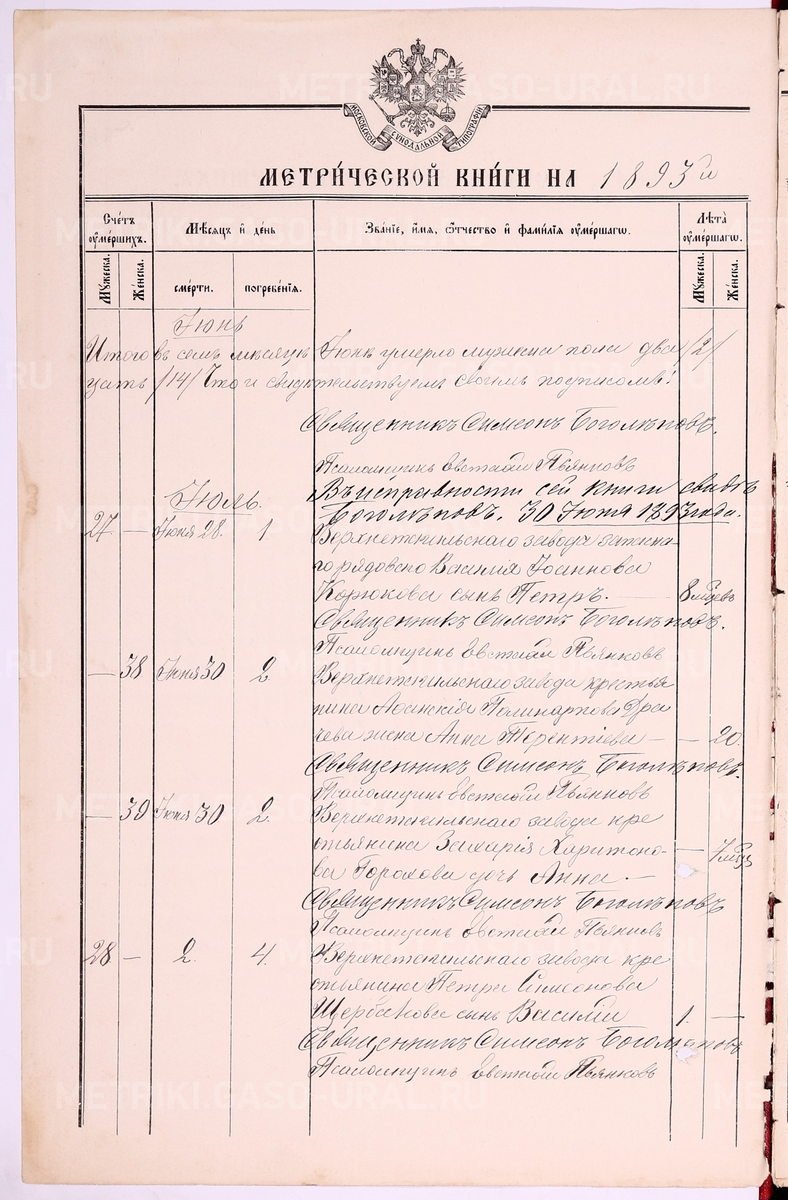 МОСКОВСКОЙ СѴНОДАЛЬНОЙ ТИПОГРАФІИ
МЕТРИ́ЧЕСКОЙ КНИ́ГИ НА 1893 й
Сче́тъ ᲂу҆ме́ршихъ.
Мѣ́сѧцъ и҆ де́нь
Зва́нїе, и҆́мѧ, ѻ҆́тчество и҆ фами́лїѧ ᲂу҆ме́ршагѡ.
Лѣ́та ᲂу҆ме́ршагѡ.
Мꙋ́жеска.
Же́нска.
сме́рти.
погребе́нїѧ.
Мꙋ́жеска.
Же́нска.
Іюнь
Итого въ семъ мѣсяцѣ Іюнѣ умерло мужска пола два /2/
цать /14/ Что и свидѣтельствуемъ своимъ подписомъ:
Священникъ Симеонъ Боголѣповъ.
Псаломщикъ Евстафій Пьянковъ
Въ исправности сей книги свидѣ
Іюль.
Боголѣповъ. 30 Іюня 1893 года.
27 — Іюня 28. 1 Верхнетагильскаго завода запасна-
го рядоваго Василія Іоаннова
Корюкова сынъ Петръ. — 8 мѣсяцевъ
Священникъ Симеонъ Боголѣповъ.
Псаломщикъ Евстафій Пьянковъ
— 38 Іюня 30 2 Верхнетагильскаго завода крестья
нина Поликарпова
жена Анна Терентіева — — 20.
Священникъ Симеонъ Боголѣповъ.
Псаломщикъ Евстафій Пьянковъ
— 39 Іюня 30 2. Верхнетагильскаго завода кре
стьянина Захарія Харитоно- — 7 мѣс
ва Горохова дочь Анна. —
Священникъ Симеонъ Боголѣповъ
Псаломщикъ Евстафій Пьянковъ
28 — 2. 4. Верхнетагильскаго завода кре
стьянина Петра Симеонова
Щербакова сынъ Василій 1. —
Священникъ Симеонъ Боголѣповъ
Псаломщикъ Евстафій Пьянковъ
METRIKI.GASO-URAL.RU